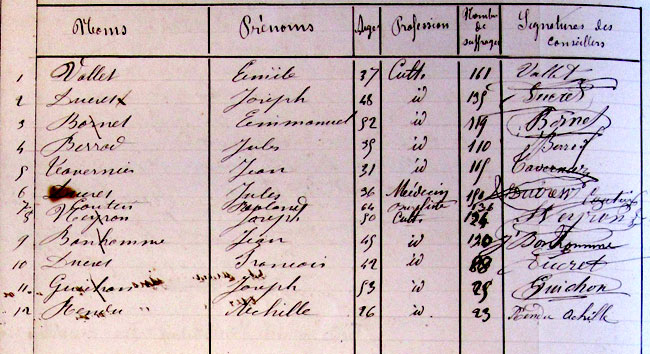 Noms Prénoms Ages Profession Nombre de suffrages Signatures des conseillers
1 Vallet Emile 37 Cult. 161 Vallet
2 Ducret Joseph 48 id 135 Ducret
3 Bornet Emmanuel 52 id 119 Bornet
4 Berrod Jules 35 id 110 Berrod
5 Tavernier Jean 31 id 115 Tavernier
6 Ducret Jules 36 Médecin Ducret
7 64 136
8 Neyron Joseph 50 Cult. 124 Neyron
9 Bonhomme Jean 45 id 120 Bonhomme
10 Ducret Francois 42 id 88 Ducret
11 Guichon Joseph 53 id 25 Guichon
12 Rendu " Achille 26 id 23 Rendu Achille